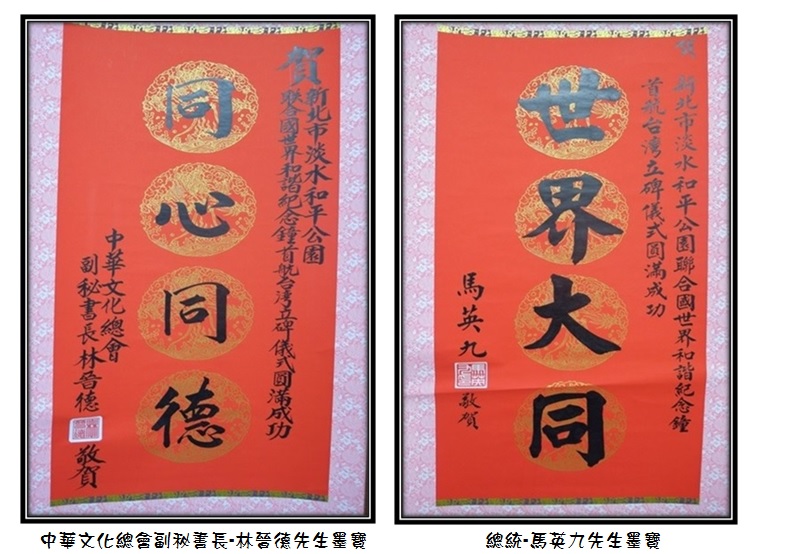 賀
新北市淡水和平公園
聯合國世界和諧紀念鐘首航台湾立碑儀式圓滿成功
同心同德
中華文化總會
副秘書長林晉德
敬賀
中華文化總會副秘書長-林晉德先生墨寶
賀 新北市淡水和平公園聯合國世界和諧紀念鐘
首航台湾立碑儀式圓滿成功
世界大同
馬英九
敬賀
總統-馬英九先生墨寶